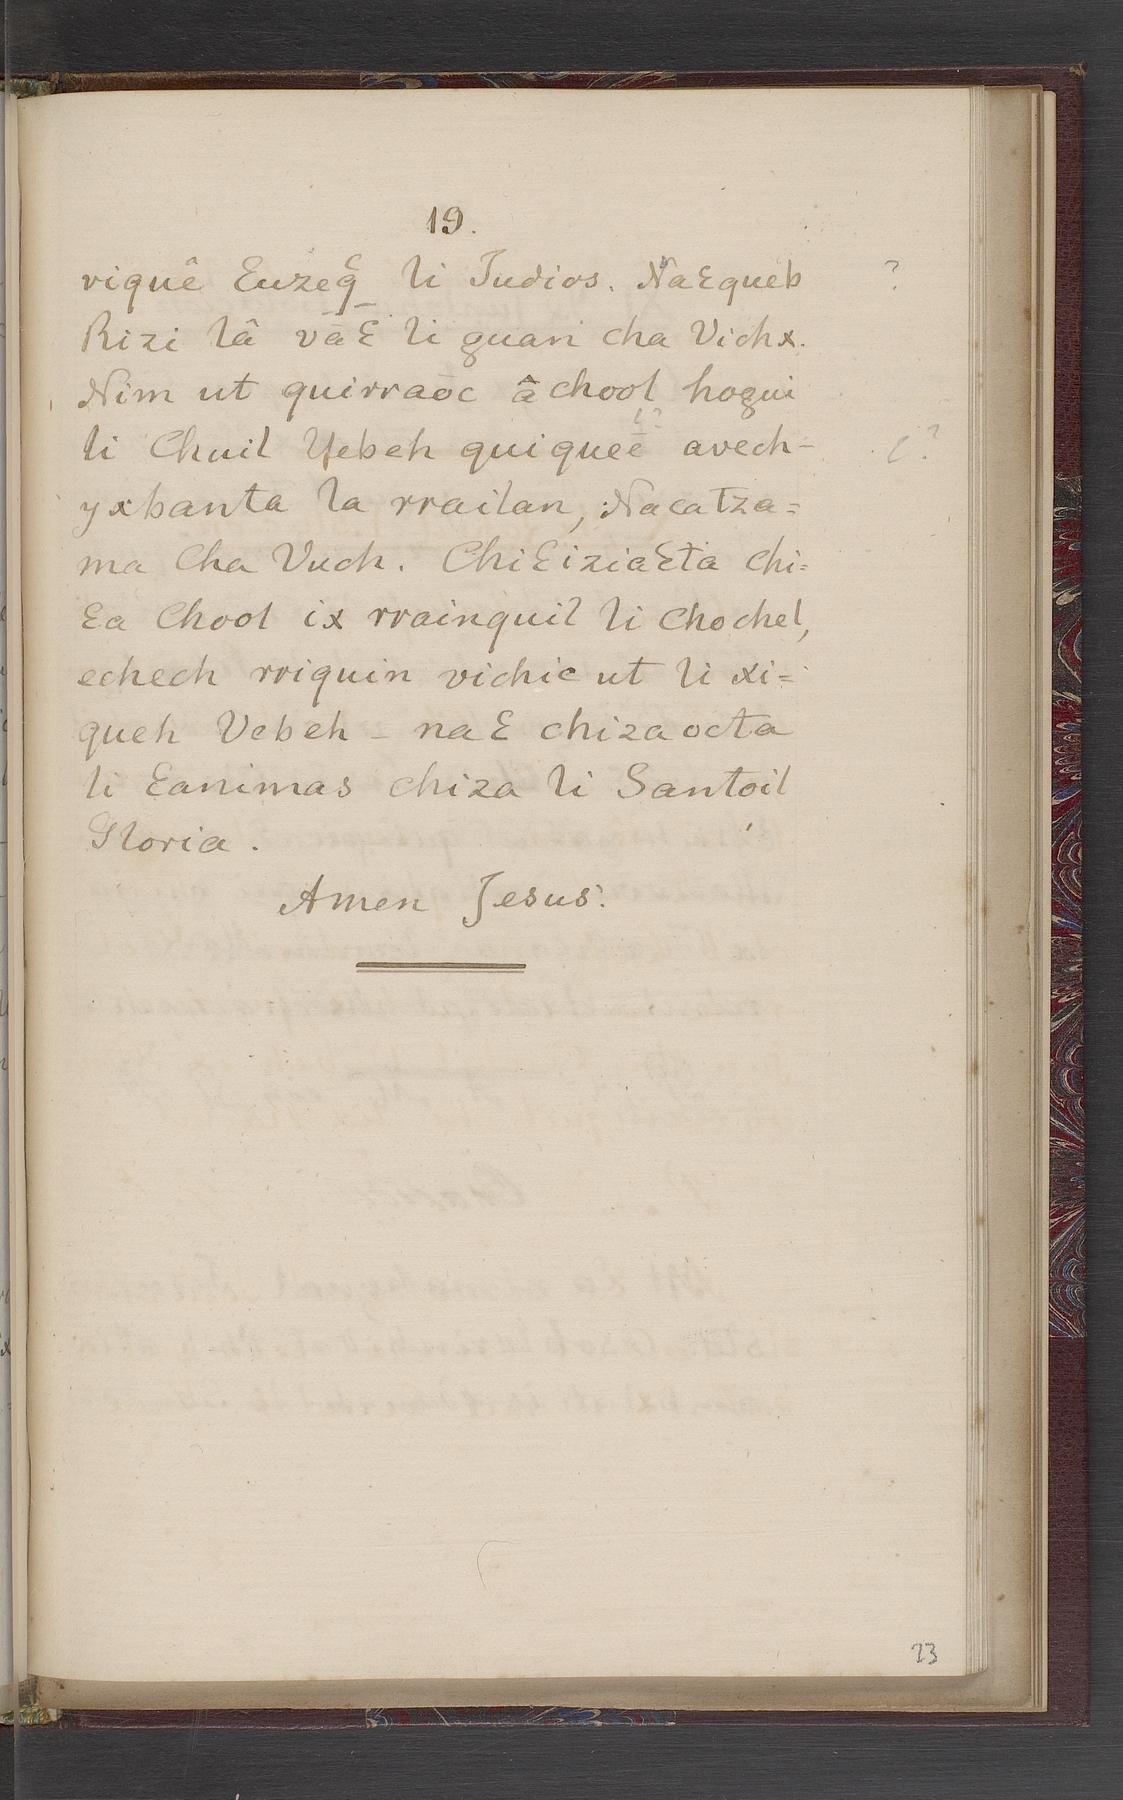 19.
viquê Ɛuzeq̄̂ li Judios. NaƐqueb ?
Rizi lâ vāƐ li guan cha Vichx.
Nim ut quirraōc â chool hogui
li Chuil Yebeh quiqueē avech= ?
yxbanta la rrailan, Nacatza=
ma Cha Vuch. ChiƐiziaƐta chi=
Ɛa Chool ix rrainquil li Chochel,
echech rriquin vichic ut li xi=
queh Vebeh = naƐ chizaocta
li Ɛanimas chiza li Santoil
Gloria.
Amen Jesus.
23